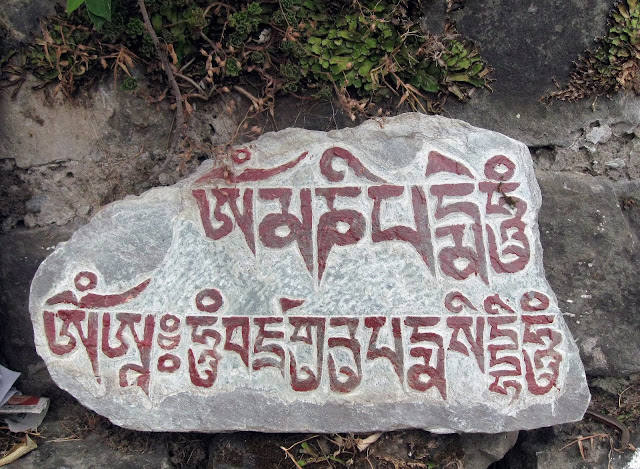 ཨོཾམཎིཔདྨེཧཱུཾ
ཨོཾཨཱཿཧཱུཾབཛྲགུརུཔདྨསིདྡྷིཧཱུཾ